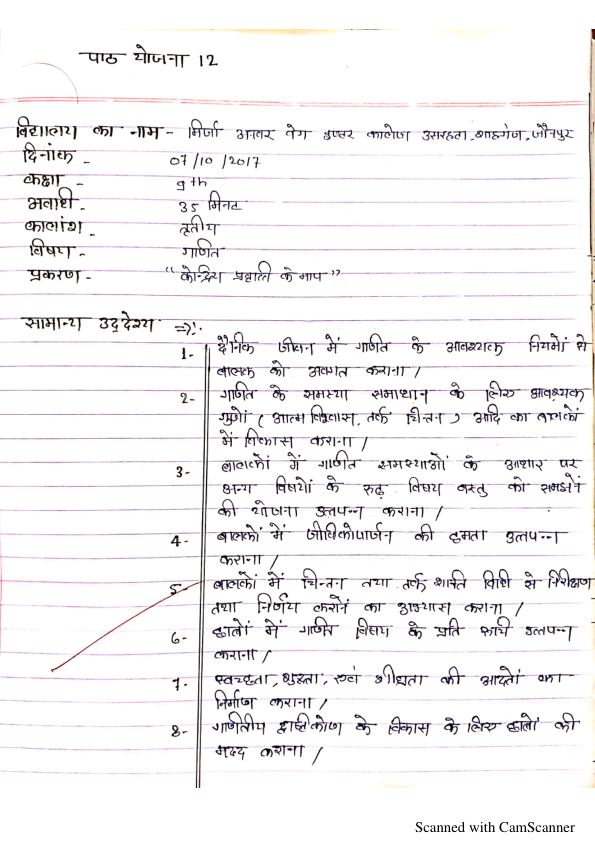 पाठ योजना 12
विद्यालय का नाम - मिर्जा अनवर बेग इण्टर कालेज उसरहता, शाहगंज, जौनपुर
दिनांक - 07/10/2017
कक्षा - 9th
अवधि - 35 मिनट
कालांश - तृतीय
विषय - गणित
प्रकरण - "केन्द्रिय प्रवृति के माप"
सामान्य उद्देश्य =>:-
1- दैनिक जीवन में गणित के आवश्यक नियमों से
बालक को अवगत कराना /
2- गणित के समस्या समाधान के लिए आवश्यक
गुणों ( आत्म विश्वास, तर्क चिन्तन ) आदि का बालकों
में विकास कराना /
3- बालकों में गणित समस्याओं के आधार पर
अन्य विषयों के रुढ़ विषय वस्तु को समझने
की योजना उत्तपन्न कराना /
4- बालकों में जीविकोपार्जन की क्षमता उत्तपन्न
कराना /
5- बालकों में चिन्तन तथा तर्क शक्ति विधि से निरीक्षण
तथा निर्णय करने का अभ्यास कराना /
6- छात्रों में गणित विषय के प्रति रूचि उत्तपन्न
कराना /
7- स्वच्छता, शुद्धता, एवं शीघ्रता की आदतों का
निर्माण कराना /
8- गणितीय दृष्टिकोण के विकास के लिए छात्रों की
मदद कराना /
Scanned with CamScanner